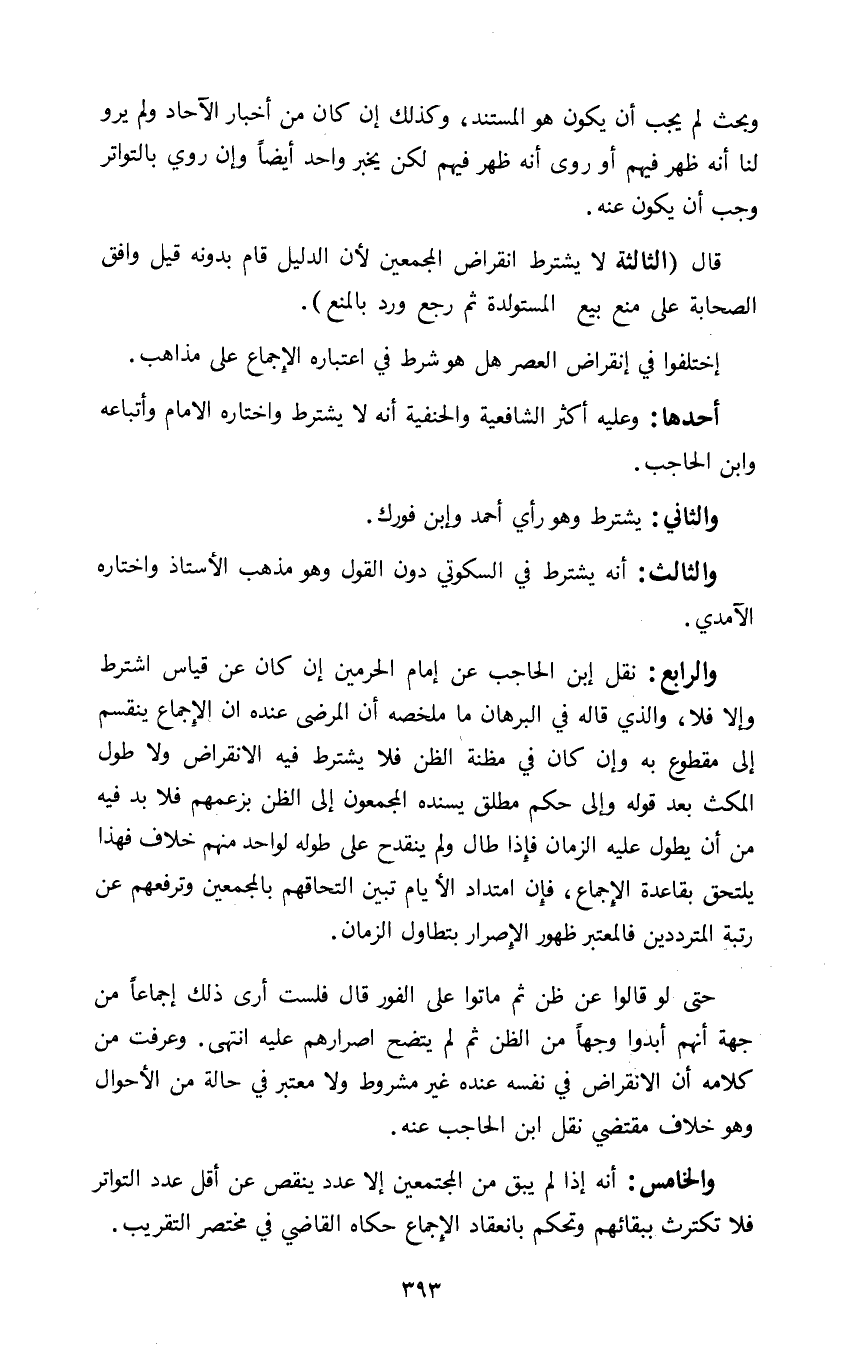 وبحث لم يجب أن يكون هو المستند، وكذلك إن كان من أخبار الآحاد ولم يرو
لنا أنه ظهر فيهم أو روى أنه ظهر فيهم لكن بخبر واحد أيضاً وإن روي بالتواتر
وجب أن يكون عنه.
قال (الثالثة لا يشترط انقراض المجمعين لأن الدليل قام بدونه قيل وافق
الصحابة على منع بيع المستولدة ثم رجع ورد بالمنع).
إختلفوا في إنقراض العصر هل هو شرط في اعتباره الإجماع على مذاهب.
أحدها: وعليه أكثر الشافعية والحنفية أنه لا يشترط واختاره الامام وأتباعه
وابن الحاجب.
والثاني: يشترط وهو رأي أحمد وإبن فورك.
والثالث: أنه يشترط في السكوتي دون القول وهو مذهب الأستاذ واختاره
الآمدي.
والرابع: نقل إبن الحاجب عن إمام الحرمين إن كان عن قياس اشترط
وإلا فلا، والذي قاله في البرهان ما ملخصه أن المرضى عنده ان الإجماع ينقسم
إلى مقطوع به وإن كان في مظنة الظن فلا يشترط فيه الانقراض ولا طول
المكث بعد قوله وإلى حكم مطلق يسنده المجمعون إلى الظن بزعمهم فلا بد فيه
من أن يطول عليه الزمان فإذا طال ولم ينقدح على طوله لواحد منهم خلاف فهذا
يلتحق بقاعدة الإجماع، فإن امتداد الأيام تبين التحاقهم بالمجمعين وترفعهم عن
رتبة المترددين فالمعتبر ظهور الإصرار بتطاول الزمان.
حتى لو قالوا عن ظن ثم ماتوا على الفور قال فلست أرى ذلك إجماعاً من
جهة أنهم أبدوا وجهاً من الظن ثم لم يتضح اصرارهم عليه انتهى. وعرفت من
كلامه أن الانقراض في نفسه عنده غير مشروط ولا معتبر في حالة من الأحوال
وهو خلاف مقتضي نقل ابن الحاجب عنه.
والخامس: أنه إذا لم يبق من المجتمعين إلا عدد ينقص عن أقل عدد التواتر
فلا تكترث ببقائهم وتحكم بانعقاد الإجماع حكاه القاضي في مختصر التقريب.
٣٩٣